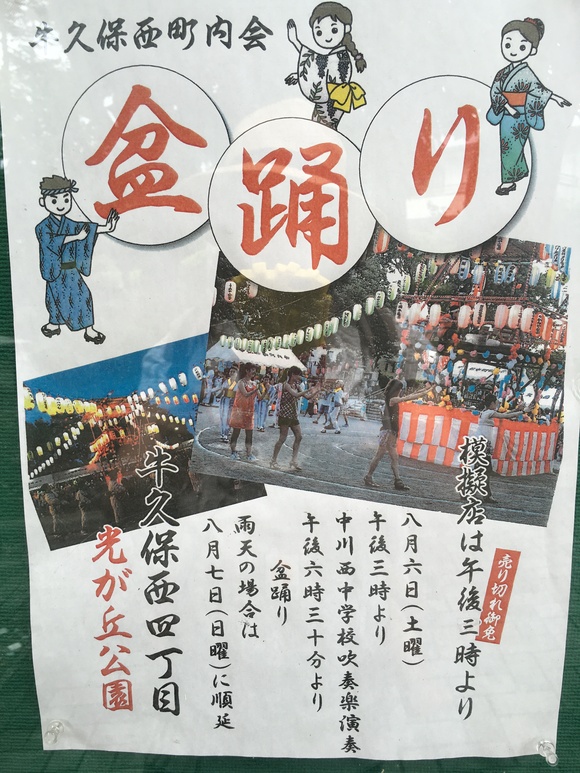 牛久保西町内会
盆踊り
模擬店は午後三時より
売り切れ御免
八月六日(土曜)
午後三時より
中川西中学校吹奏楽演奏
午後六時三十分より
盆踊り
雨天の場合は
八月七日(日曜)に順延
牛久保西四丁目
光が丘公園